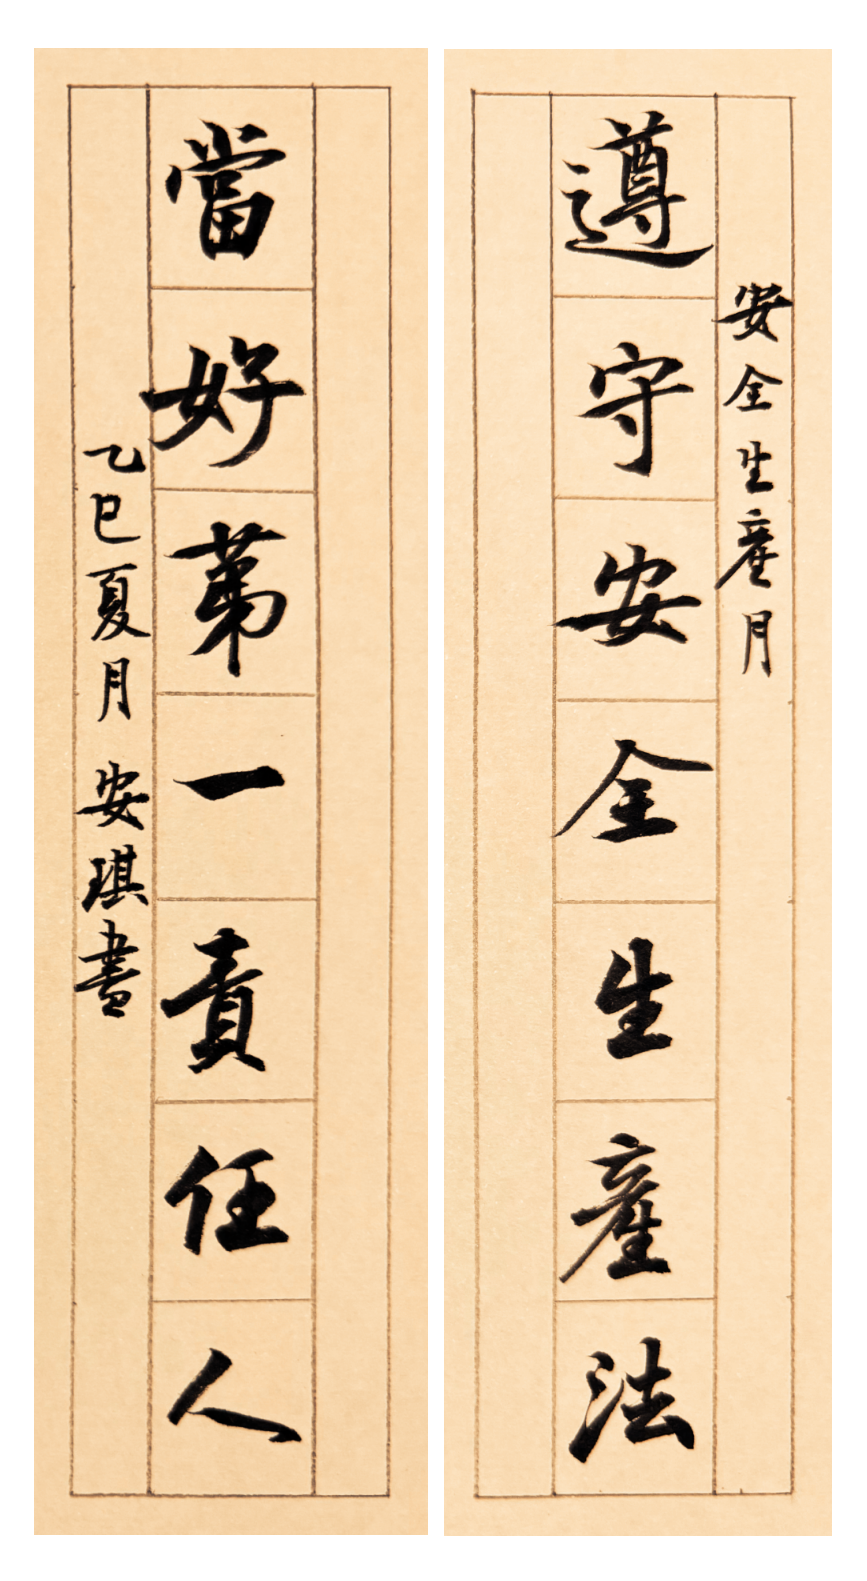 安全生產月
遵守安全生產法
當好第一責任人
乙巳夏月 安琪書